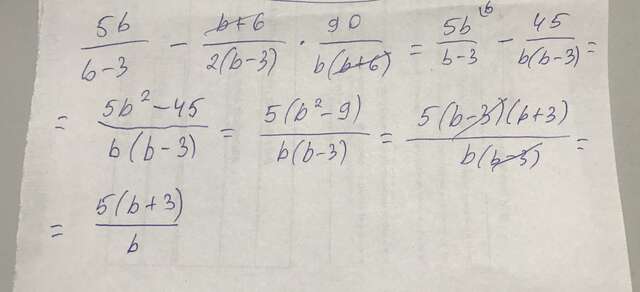 5b/(b-3) - (b+6)/(2(b-3)) · 90/(b(b+6)) = 5b^b/(b-3) - 45/(b(b-3)) =
= (5b²-45)/(b(b-3)) = 5(b²-9)/(b(b-3)) = 5(b-3)(b+3)/(b(b-3)) =
= 5(b+3)/b